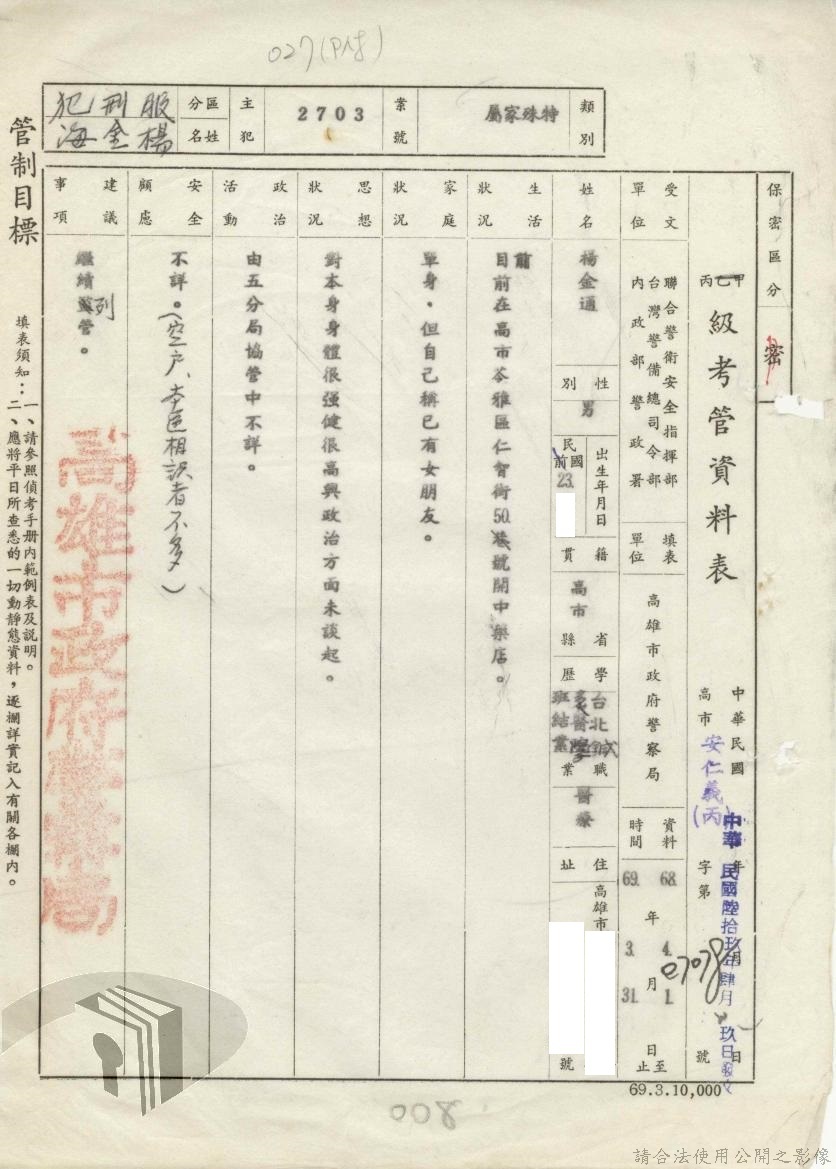 027(PAS)
類別
特殊家屬
案號
2703
主犯
區分
服刑犯
姓名
楊金海
管制目標
保密區分
密
甲乙丙級考管資料表
中華民國 年 月 日
高市 字第 號
安仁義(丙)
07078
中華民國陸拾玖年肆月玖日發文
受文單位
聯合警衛安全指揮部
台灣警備總司令部
內政部警政署
填表單位
高雄市政府警察局
資料時間
68. 4. 1.
69. 3. 31.
年 月 日至止
姓名
楊金通
性別
男
出生年月日
民國前
23.
籍貫
省縣
高市
學歷
台北
班結業
職業
醫療
住址
高雄市
號
生活狀況
目前在高市苓雅區仁智街50號開中藥店。
家庭狀況
單身,但自己稱已有女朋友。
思想狀況
對本身身體很强健很高興政治方面未談起。
政治活動
由五分局協管中不詳。
安全顧慮
不詳。(空戶、本區相識者不多)
建議事項
繼續列管。
高雄市政府警察局
填表須知:一、請參照偵考手册內範例表及說明。
二、應將平日所查悉的一切動靜態資料,逐欄詳實記入有關各欄內。
69.3.10,000
008
請合法使用公開之影像